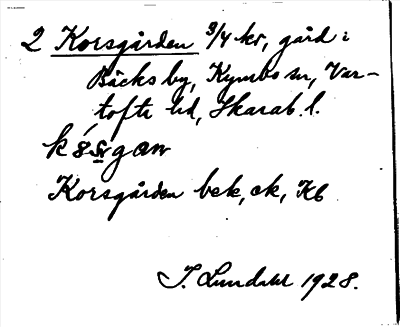 2 Korsgården 3/4 kr, gård i
Bäcks by, Kymbo sn, Var-
tofta hd, Skarab. l.
Korsgården bek, ek, Kb
J. Lundahl 1928.